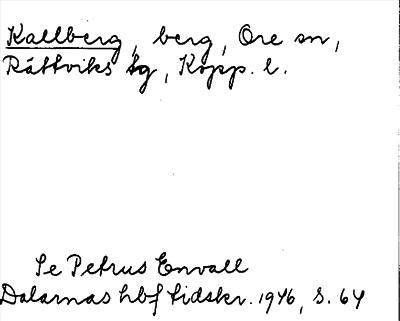 Kallberg, berg, Ore sn,
Rättviks tg, Kopp. l.
Se Petrus Envall
Dalarnas hbf tidskr. 1946, s. 64